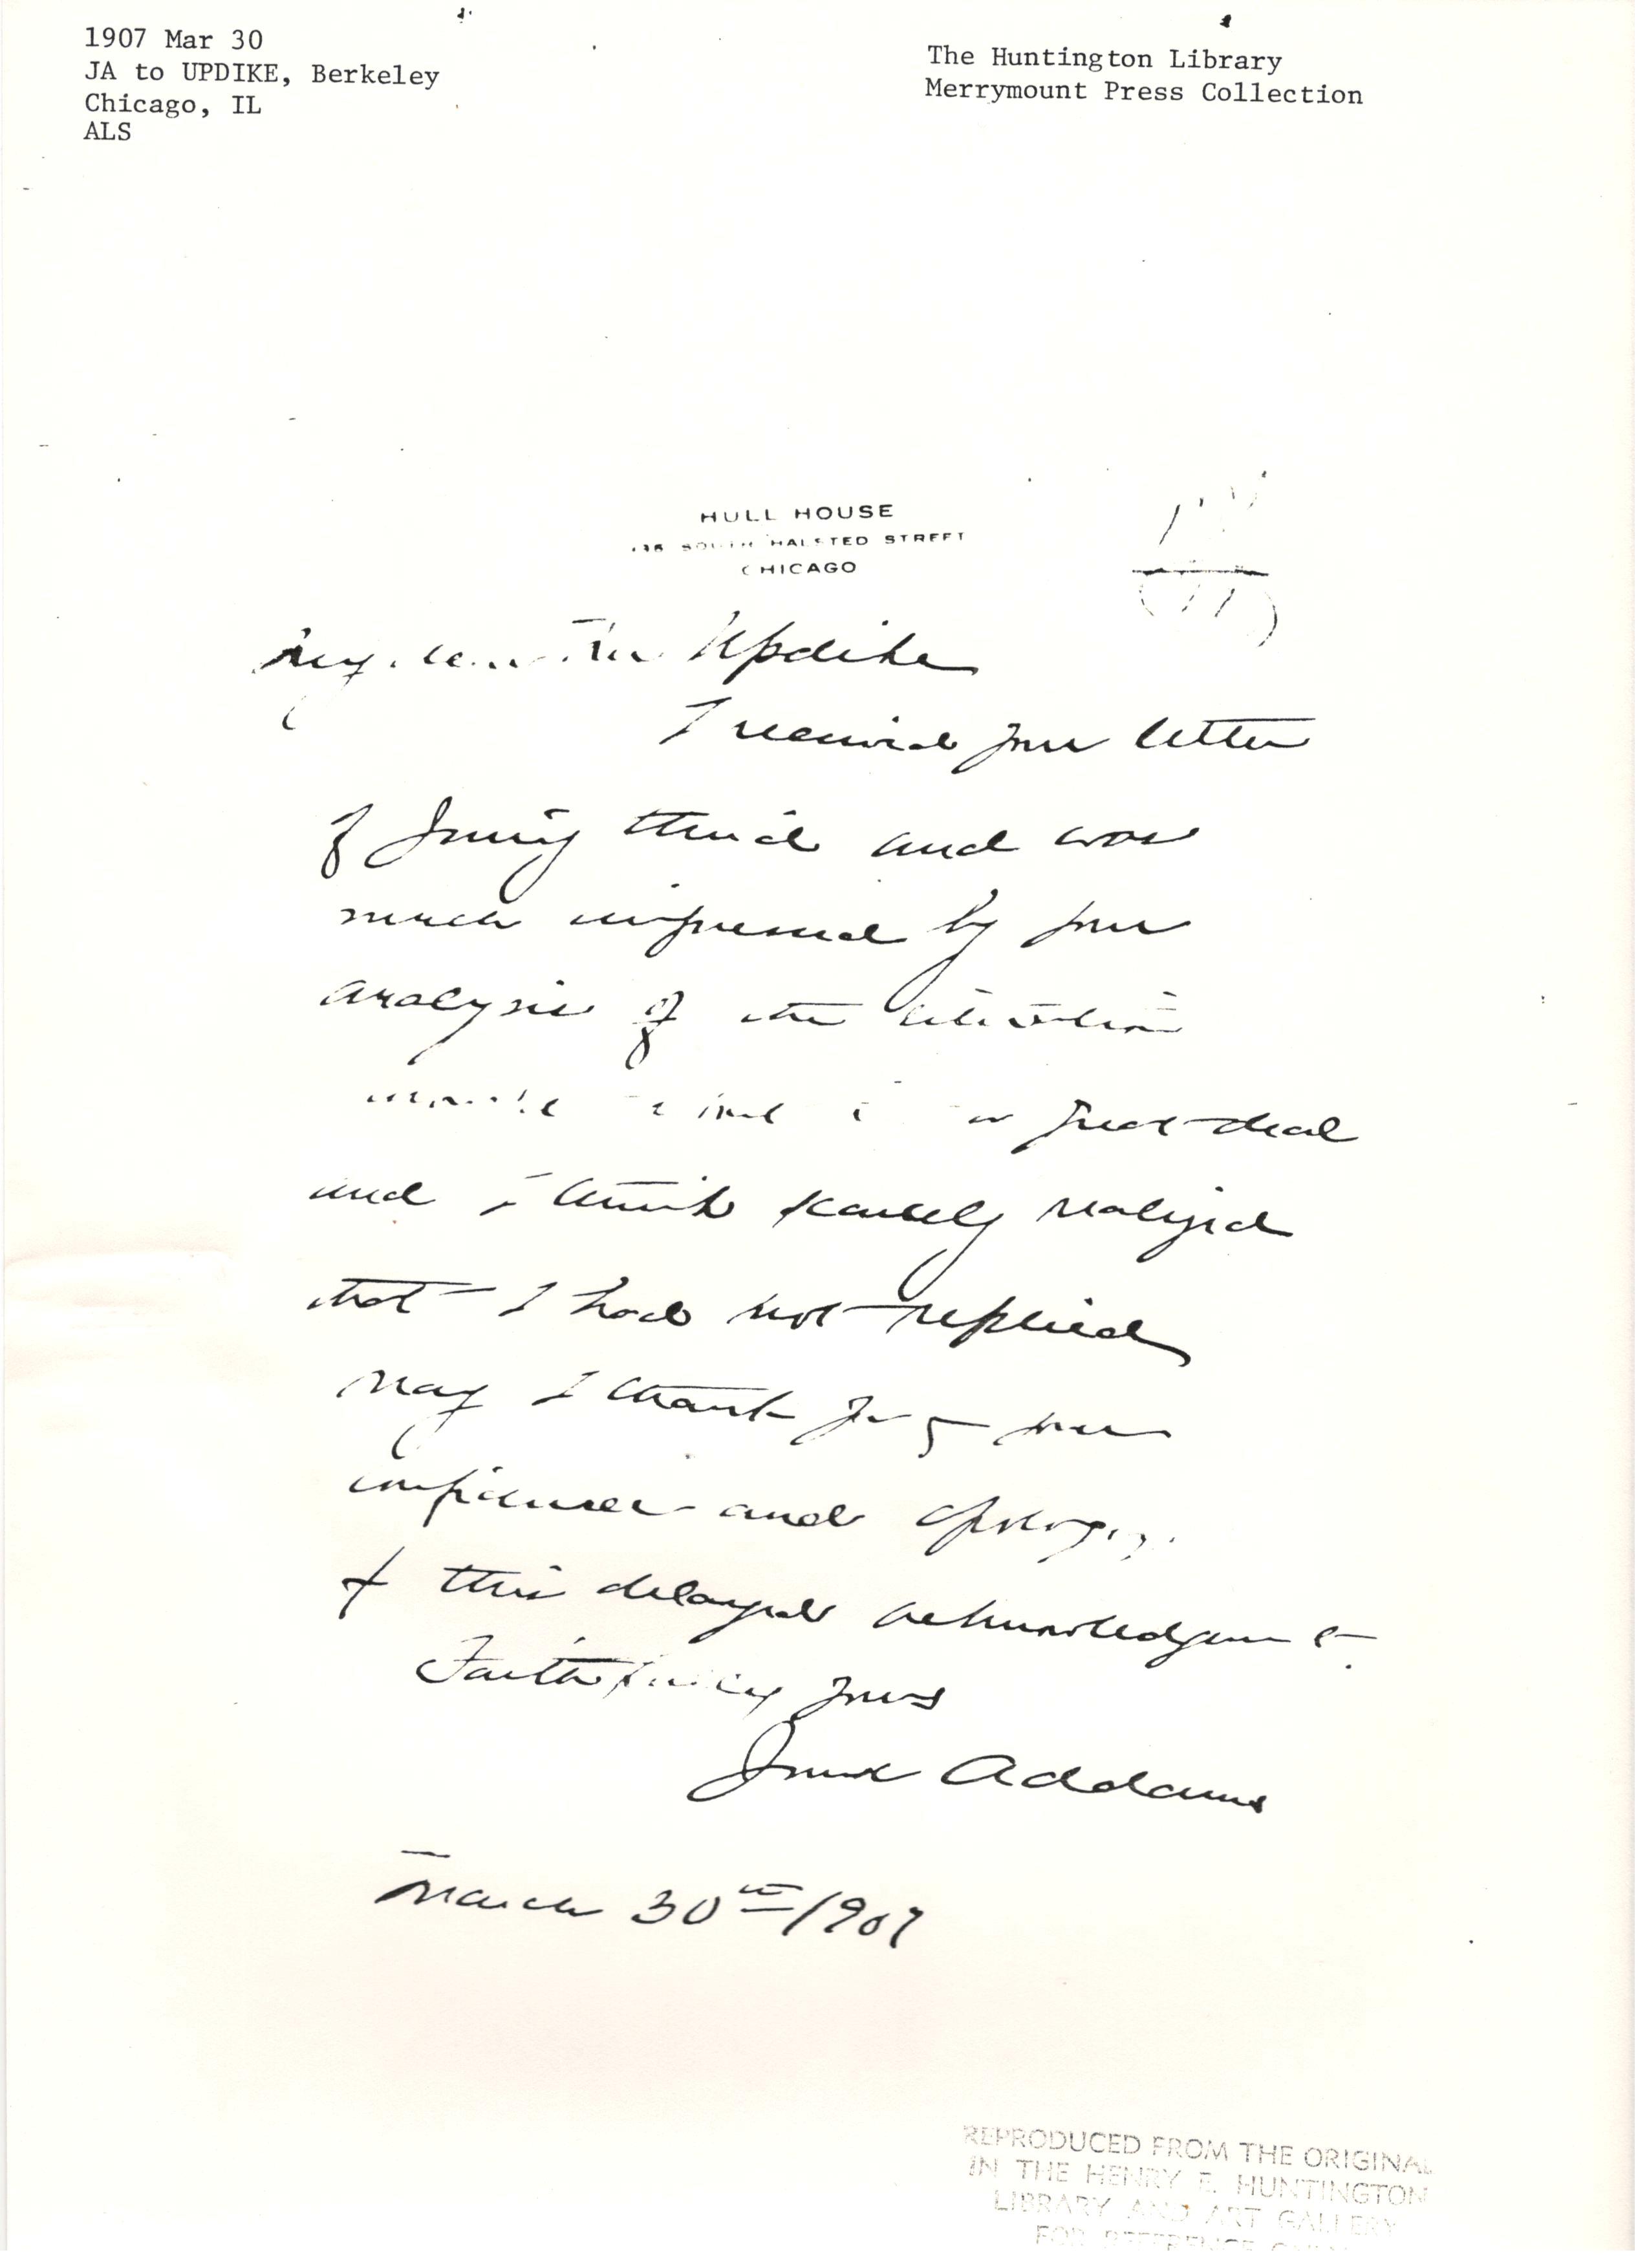 1907 Mar 30
JA to UPDIKE, Berkeley
Chicago, IL
ALS
The Huntington Library
Merrymount Press Collection
HULL HOUSE
SOUTH HALSTED STREET
CHICAGO
My dear Mr. Updike
I received your letter
of third and was
much impressed by your
analysis of the situation
a great deal
and I think scarcely realized
that I had not replied
May I thank you for your
confidence and apologize
for this delayed acknowledgment.
Faithfully yours
Jane Addams
March 30th 1907
REPRODUCED FROM THE ORIGINAL
IN THE HENRY E. HUNTINGTON
LIBRARY AND ART GALLERY
FOR REFERENCE